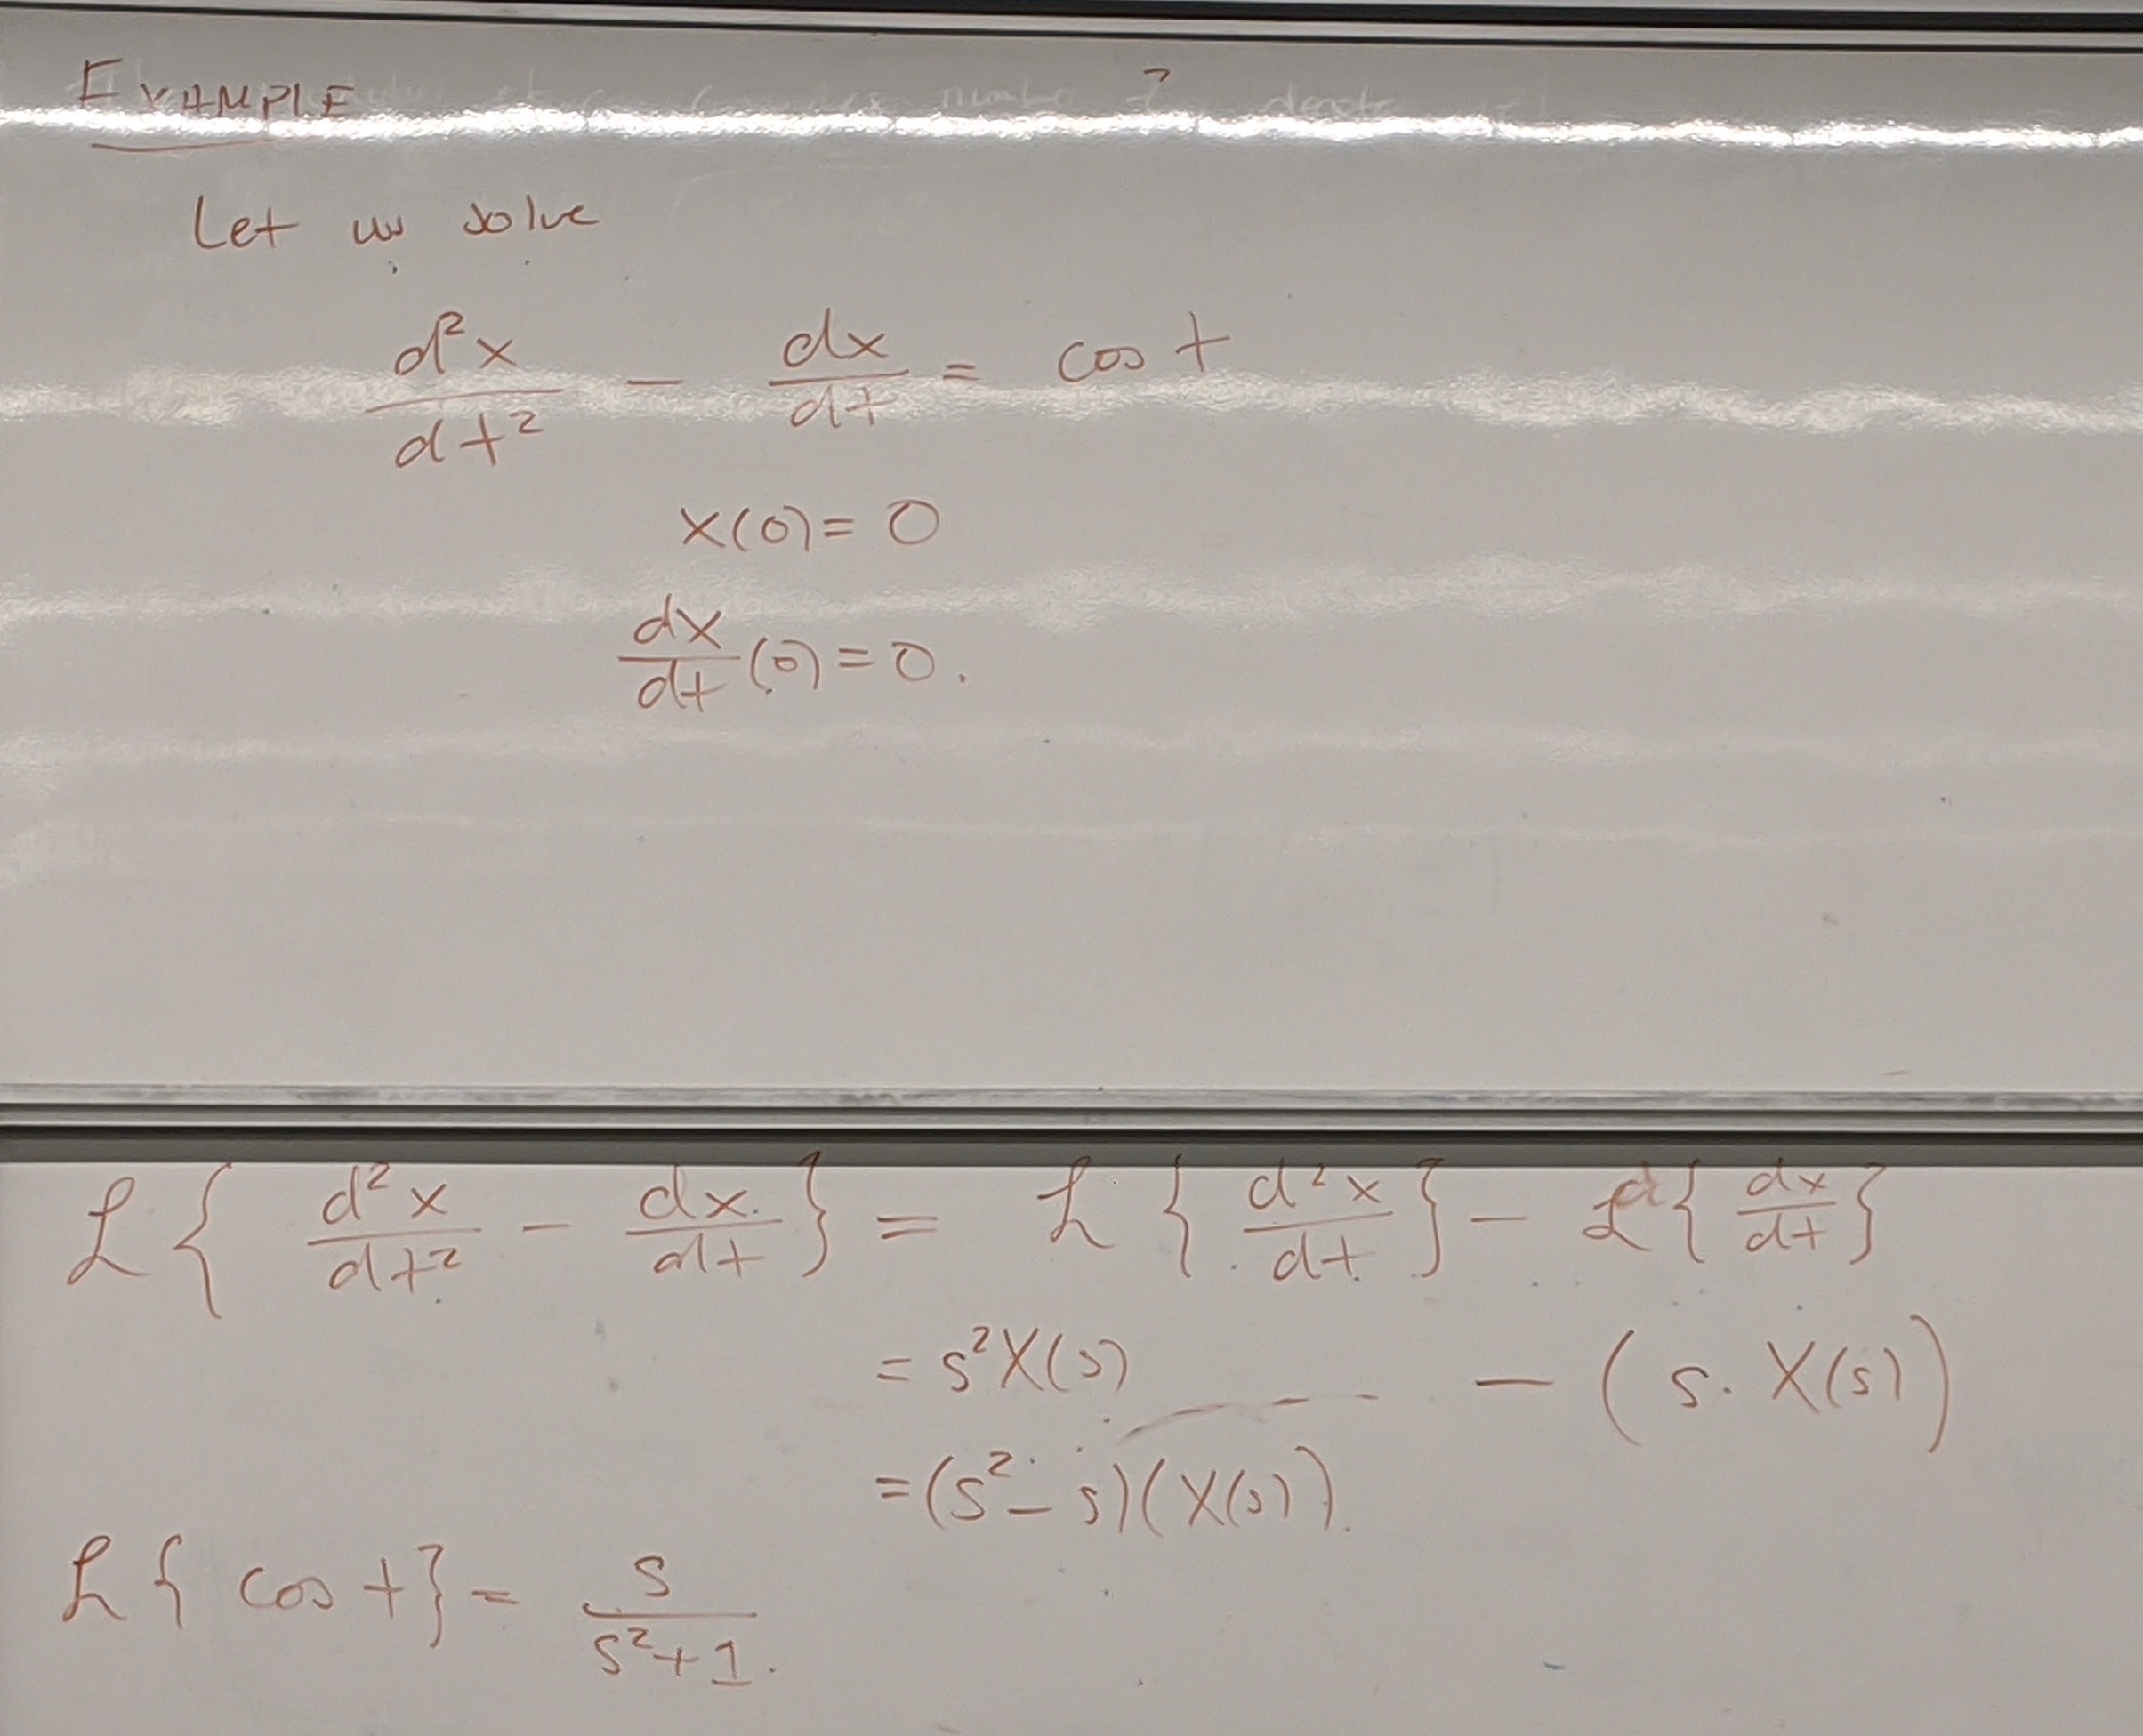 EXAMPLE
Let us solve
d²x/dt² - dx/dt = cos t
x(0) = 0
dx/dt (0) = 0.
ℒ{ d²x/dt² - dx/dt } = ℒ{ d²x/dt } - ℒ{ dx/dt }
= s²X(s) - (s. X(s))
= (s² - s)(X(s)).
ℒ{ cos t } = s/(s²+1).